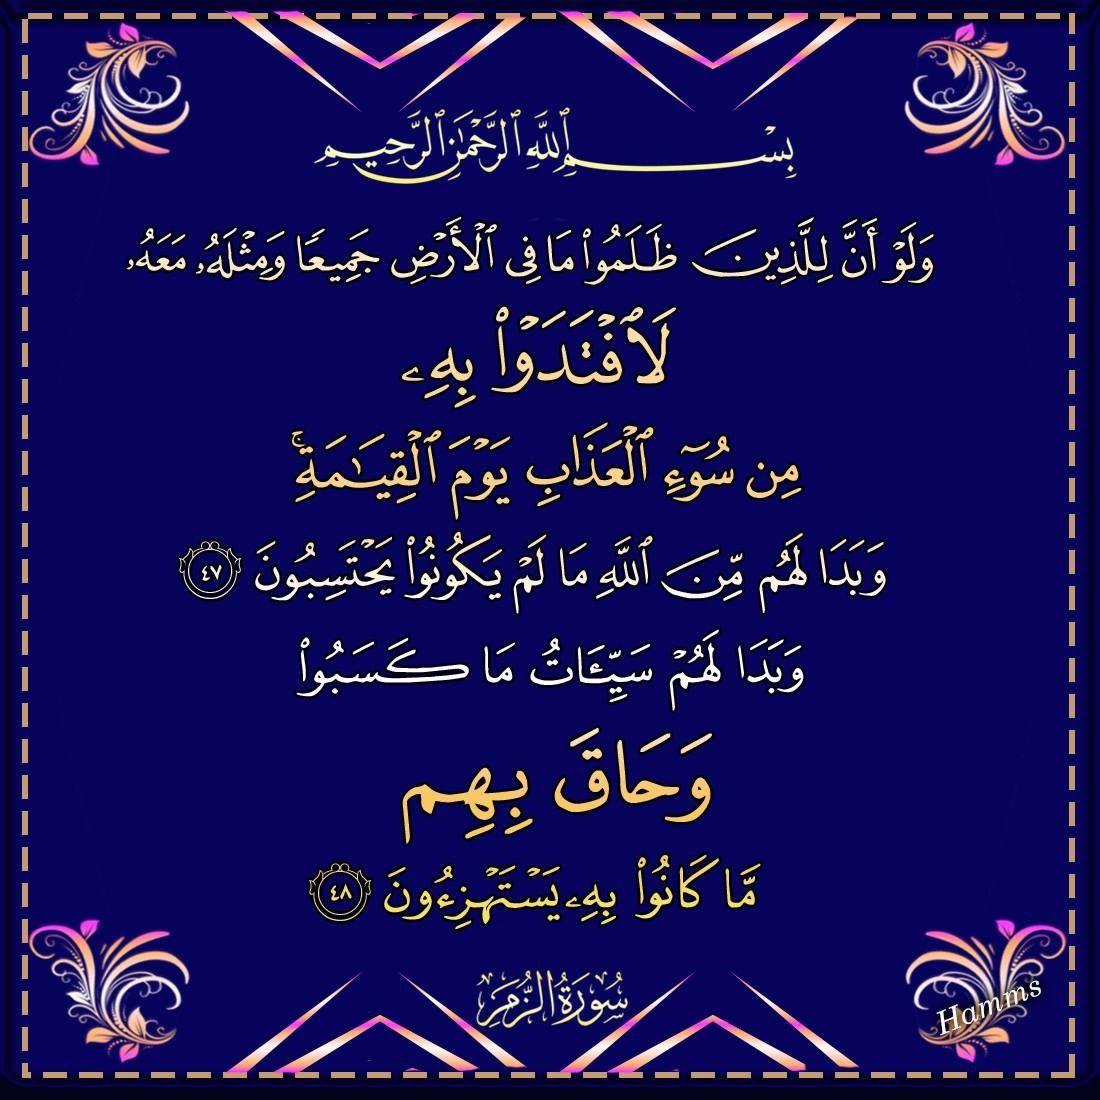 بِسْمِ ٱللَّهِ ٱلرَّحْمَٰنِ ٱلرَّحِيمِ
وَلَوْ أَنَّ لِلَّذِينَ ظَلَمُوا۟ مَا فِى ٱلْأَرْضِ جَمِيعًا وَمِثْلَهُۥ مَعَهُۥ
لَٱفْتَدَوْا۟ بِهِۦ
مِن سُوٓءِ ٱلْعَذَابِ يَوْمَ ٱلْقِيَـٰمَةِ ۚ
وَبَدَا لَهُم مِّنَ ٱللَّهِ مَا لَمْ يَكُونُوا۟ يَحْتَسِبُونَ ٤٧
وَبَدَا لَهُمْ سَيِّـَٔاتُ مَا كَسَبُوا۟
وَحَاقَ بِهِم
مَّا كَانُوا۟ بِهِۦ يَسْتَهْزِءُونَ ٤٨
سُورَةُ الزُّمَرِ
Hamms